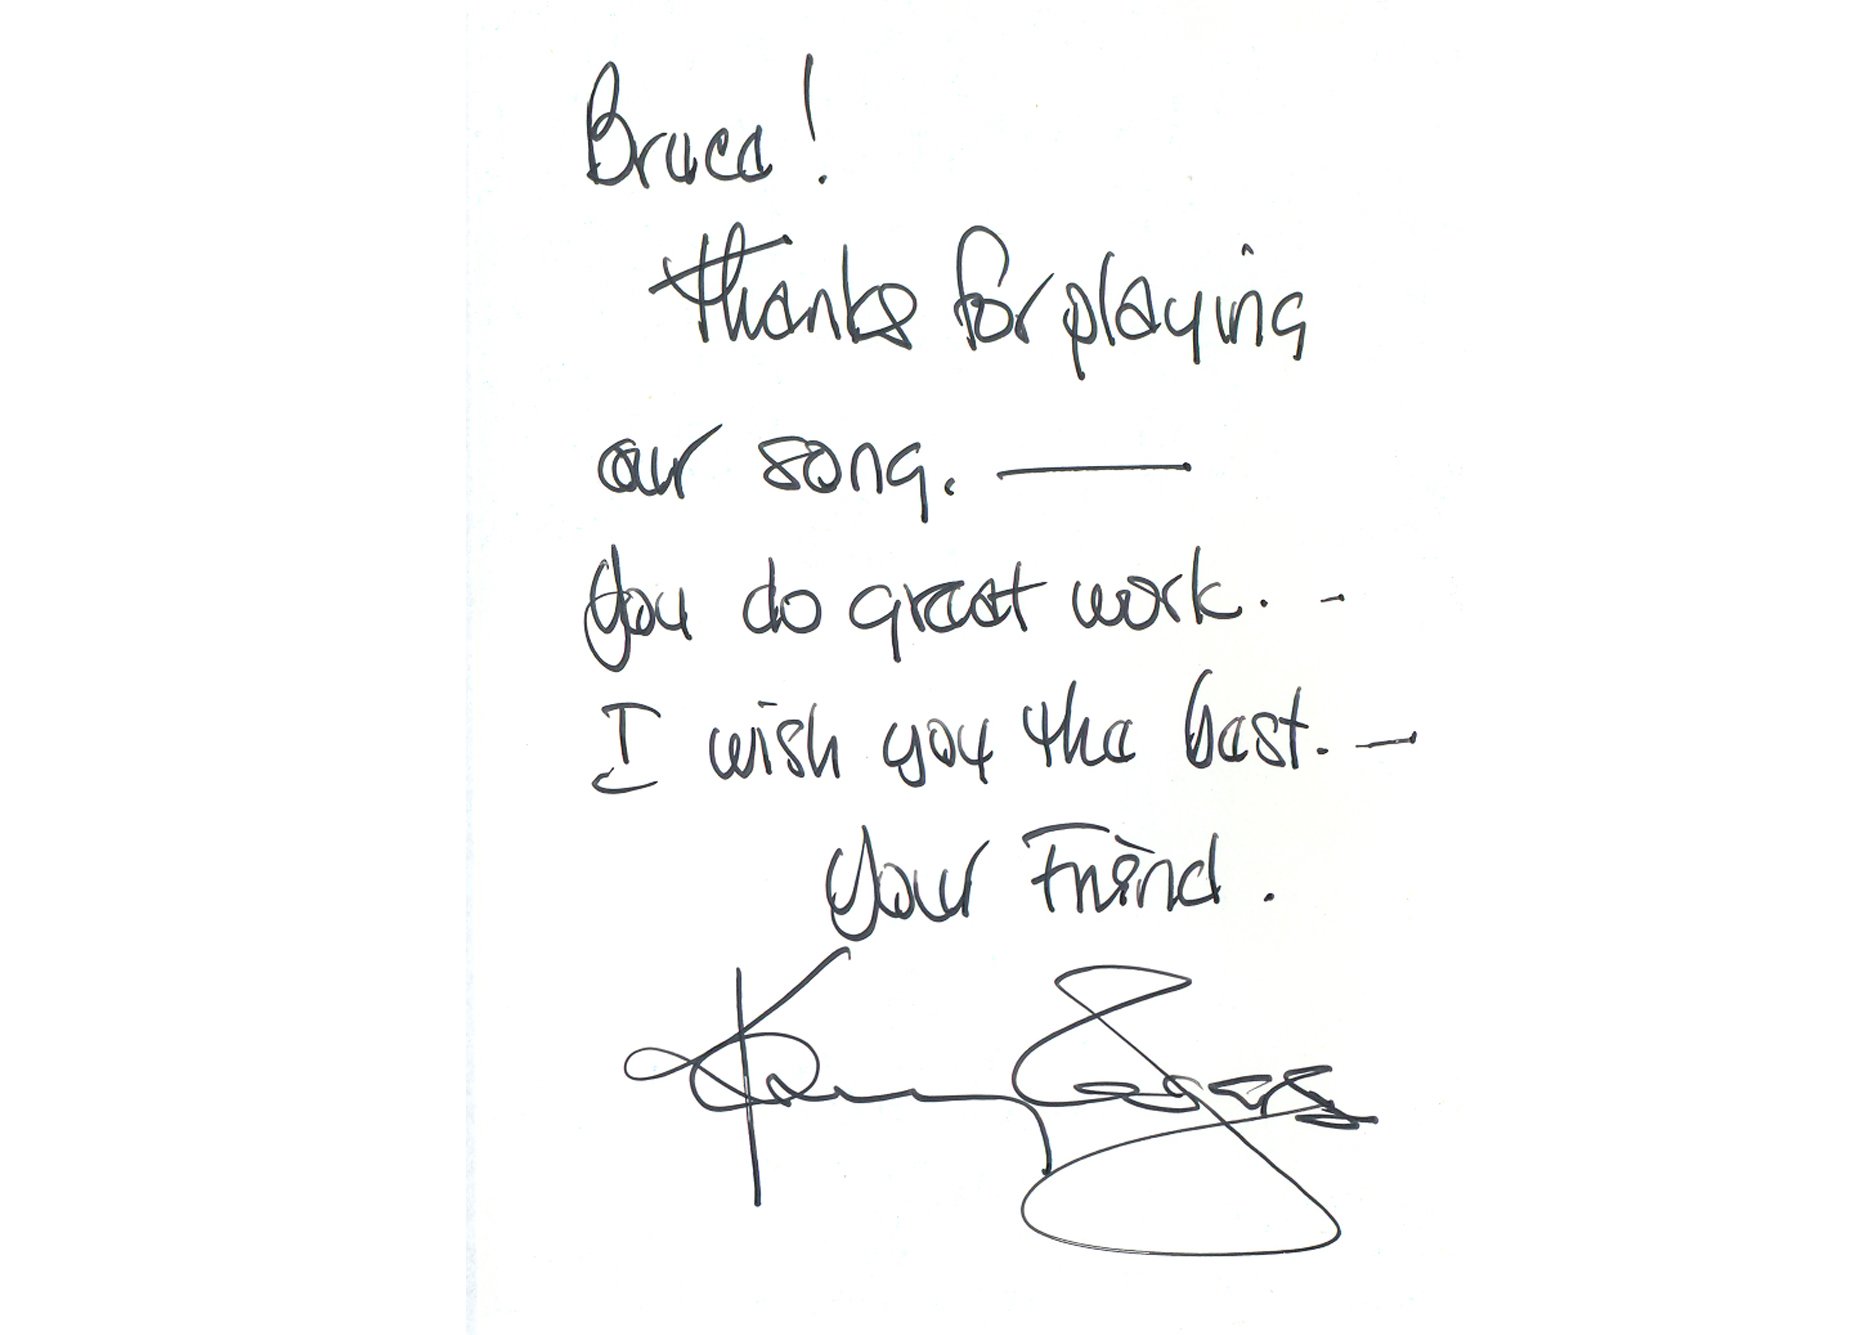 Bruce!
Thanks for playing
our song. —
You do great work. -
I wish you the best. —
Your Friend.